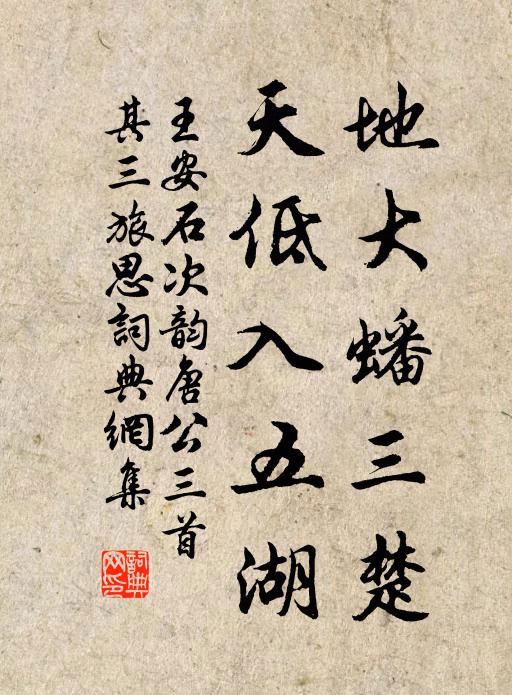 地大蟠三楚
天低入五湖
王安石次韵唐公三首
其三旅思詞典網集
詞典網印